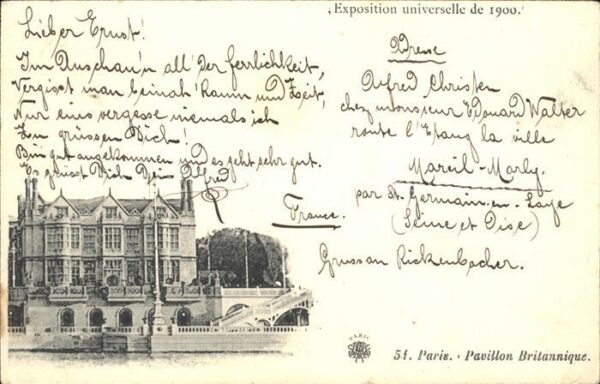 Exposition universelle de 1900.
Lieber Ernst!
Im Anschau'n all' der Herrlichkeit,
Vergisst man beinah' Raum und Zeit,
Nur eins vergesse niemals ich
Zu grüssen Dich!
Bin gut angekommen und es geht sehr gut.
Es grüsst Dich Dein Alfred
Adresse
Alfred Christen
chez monsieur Edouard Walter
route l'Etang la ville
Mareil-Marly.
par St. Germain-en-Laye
(Seine et Oise)
France.
Gruss an Rickenbacher.
PARIS
51. Paris. - Pavillon Britannique.